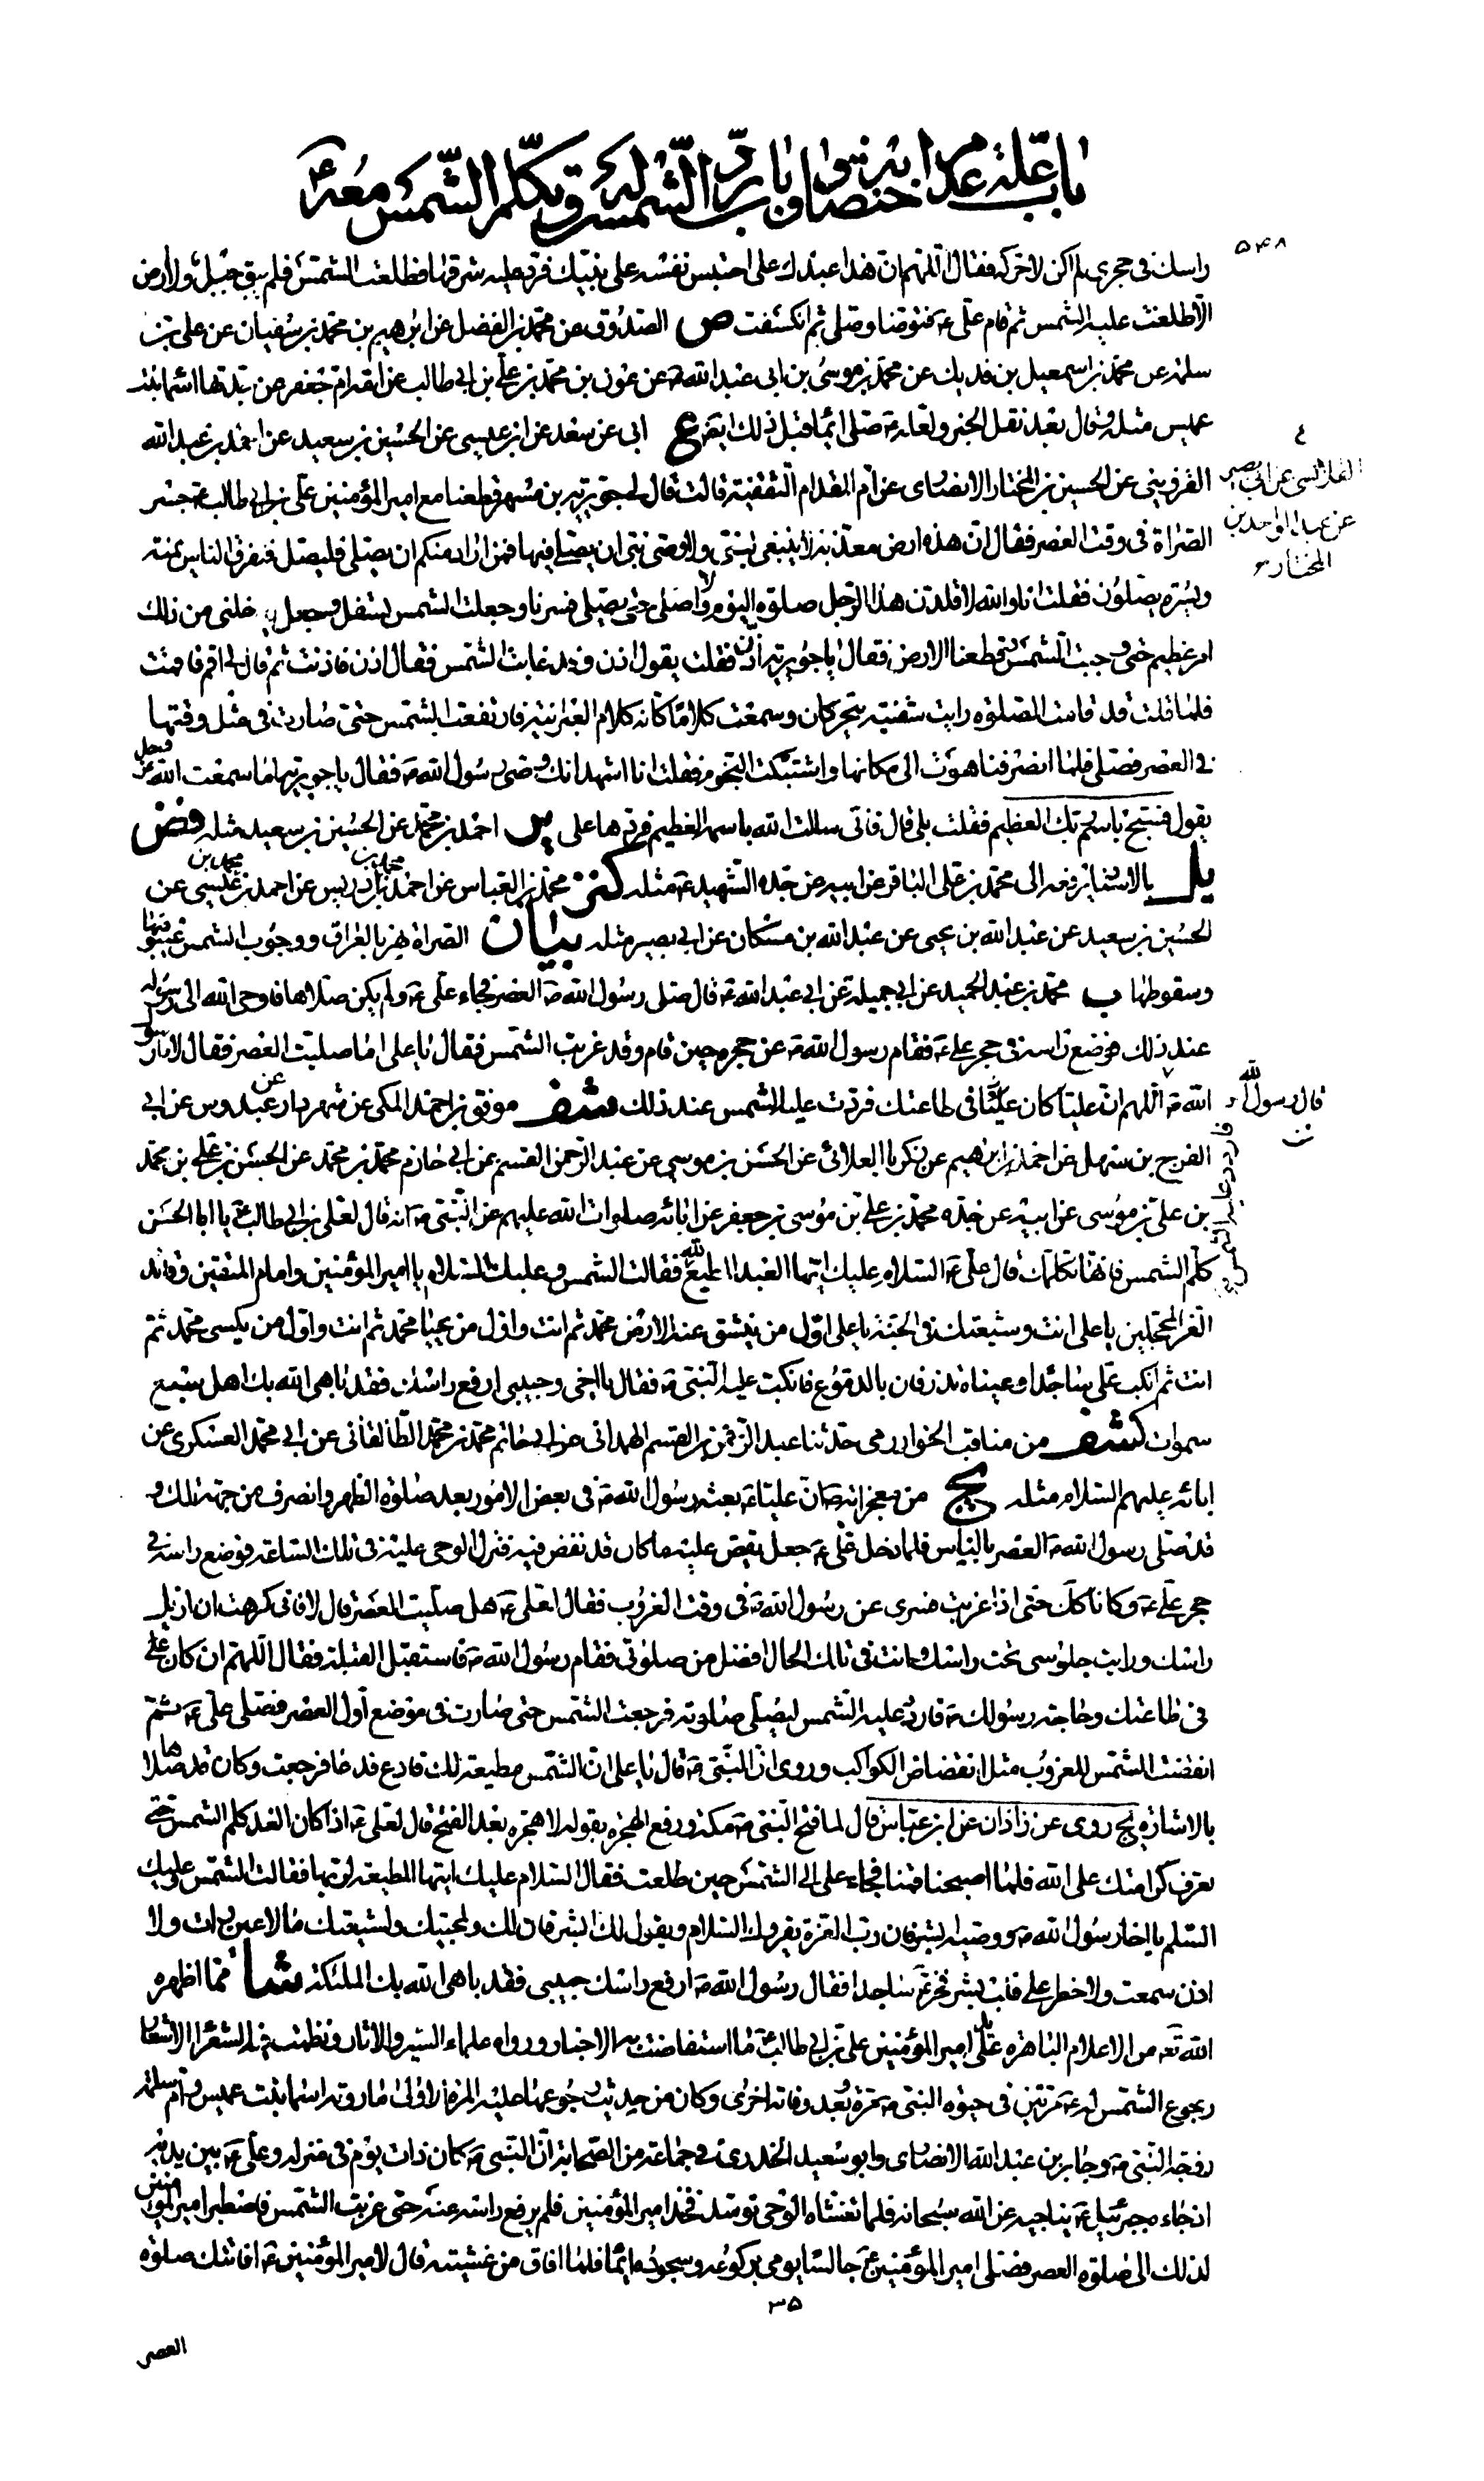 باب علة عدم اختصاص
باب رد الشمس له وتكلم الشمس معه ع
۵۴۸
راسك في حجري لم اكن لاحركه فقال اللهم ان هذا عبدك علي احتبس نفسه على نبيك فرد عليه شرقها فطلعت الشمس فلم يبق جبل ولا ارض
الا طلعت عليه الشمس ثم قام علي ع فتوضا وصلى ثم انكسفت ص الصدوق عن محمد بن الفضل عن ابرهيم بن محمد بن سفيان عن علي بن
سلمة عن محمد بن اسمعيل بن فديك عن محمد بن موسى بن ابي عبد الله عن عون بن محمد بن علي بن ابي طالب عن امه ام جعفر عن جدتها اسما بنت
عميس مثله وقال بعد نقل الخبر ولعله ع صلى ايماء قبل ذلك ايضا ع ابي عن سعد عن ابن عيسى عن الحسين بن سعيد عن احمد بن عبد الله
القرويني عن الحسين بن المختار
القلانسي عن ابي بصير
عن عبد الواحد بن
المختار
الانصارى عن ام المقدام الثقفية قالت قال لي جويرية بن مسهر قطعنا مع امير المؤمنين علي بن ابي طالب ع جسر
الصراة في وقت العصر فقال ان هذه ارض معذبة لا ينبغي لنبي ولا وصي نبي ان يصلي فيها فمن اراد منكم ان يصلي فليصل فتفرق الناس يمنة
ويسرة يصلون فقلت انا والله لاقلدن هذا الرجل صلوة اليوم ولا اصلى حتى يصلي فسرنا وجعلت الشمس تسفل وجعل يدخلني من ذلك
امر عظيم حتى وجبت الشمس وقطعنا الارض فقال يا جويرية اذن فقلت يقول اذن وقد غابت الشمس فقال اذن فاذنت ثم قال لي اقم فاقمت
فلما قلت قد قامت الصلوة رايت شفتيه يتحركان وسمعت كلاما كانه كلام العبرانية فارتفعت الشمس حتى صارت في مثل وقتها
في العصر فصلى فلما انصرفنا هوت الى مكانها واشتبكت النجوم فقلت انا اشهد انك وصي رسول الله ص فقال يا جويرية اما سمعت الله عز وجل
يقول فسبح باسم ربك العظيم فقلت بلى قال فاني سالت الله باسمه العظيم فردها على ير احمد بن محمد عن الحسين بن سعيد مثله فض
يل بالاسناد يرفعه الى محمد بن علي الباقر عن ابيه عن جده الشهيد ع مثله كنز محمد بن العباس عن احمد بن ادريس عن احمد بن محمد بن عيسى عن
الحسين بن سعيد عن عبد الله بن يحيى عن عبد الله بن مسكان عن ابي بصير مثله بيان الصراة نهر بالعراق ووجوب الشمس غيبوبتها
وسقوطها ب محمد بن عبد الحميد عن ابي جميلة عن ابي عبد الله ع قال صلى رسول الله ص العصر فجاء علي ع ولم يكن صلاها فاوحى الله الى رسوله
عند ذلك فوضع راسه في حجر علي ع فقام رسول الله ص عن حجره حين قام وقد غربت الشمس فقال يا علي اما صليت العصر فقال لا يا رسول
الله
قال رسول الله
ص اللهم ان عليا كان في طاعتك
فاردد عليه الشمس
فردت عليه الشمس عند ذلك شف موفق بن احمد المكي عن شهردار عن عبدوس عن ابي
الفرج بن سهل عن احمد بن ابرهيم عن زكريا العلائي عن الحسن بن موسى عن عبد الرحمن القسم عن ابي حازم محمد بن محمد عن الحسن بن علي بن محمد
بن علي بن موسى عن ابيه عن جده محمد بن علي بن موسى بن جعفر عن ابائه صلوات الله عليهم عن النبي ص انه قال لعلي بن ابي طالب ع يا ابا الحسن
كلم الشمس فانها تكلمك قال علي ع السلام عليك ايتها العبد المطيع لله فقالت الشمس وعليك السلام يا امير المؤمنين وامام المتقين وقائد
الغر المحجلين يا علي انت وشيعتك في الجنة يا علي اول من ينشق عنه الارض محمد ثم انت واول من يحيا محمد ثم انت واول من يكسى محمد ثم
انت ثم انكب علي ساجدا وعيناه تذرفان بالدموع فانكب عليه النبي ص فقال يا اخي وحبيبي ارفع راسك فقد باهى الله بك اهل سبع
سموات كشف من مناقب الخوارزمي حدثنا عبد الرحمن بن القسم الهمداني عن ابي حاتم محمد بن محمد الطالقاني عن ابي محمد العسكرى عن
ابائه عليهم السلام مثله يج من معجزاته ص ان عليا ع بعثه رسول الله ص في بعض الامور بعد صلوة الظهر وانصرف من جهته تلك و
قد صلى رسول الله ص العصر بالناس فلما دخل علي ع جعل يقص عليه ما كان قد نفض فيه فنزل الوحى عليه في تلك الساعة فوضع راسه في
حجر علي ع وكانا كك حتى اذا غربت فسرى عن رسول الله ص في وقت الغروب فقال لعلي ع هل صليت العصر قال لا فاني كرهت ان ازيل
راسك ورايت جلوسي تحت راسك وانت في تلك الحال افضل من صلوتي فقام رسول الله ص فاستقبل القبلة فقال اللهم ان كان علي
في طاعتك وحاجة رسولك ص فاردد عليه الشمس ليصلي صلوته فرجعت الشمس حتى صارت في موضع اول العصر فصلى علي ع ثم
انقضت الشمس للغروب مثل انقضاض الكواكب وروى ان النبي ص قال يا علي ان الشمس مطيعة لك فادع فدعا فرجعت وكان قد صلاها
بالاشارة يج روى عن زاذان عن ابن عباس قال لما فتح النبي ص مكة ورفع الهجرة بقوله لا هجرة بعد الفتح قال لعلي ع اذا كان الغد كلم الشمس حتى
تعرف كرامتك على الله فلما اصبحنا قمنا فجاء علي الى الشمس حين طلعت فقال السلام عليك ايتها المطيعة لربها فقالت الشمس وعليك
السلم يا اخا رسول الله ص ووصيه ابشر فان رب العزة يقرئك السلام ويقول لك ابشر فان لك ولمحبيك ولشيعتك ما لا عين رات ولا
اذن سمعت ولا خطر على قلب بشر فخر ع ساجدا فقال رسول الله ص ارفع راسك حبيبي فقد باهى الله بك الملئكة شا مما اظهره
الله تع من الاعلام الباهرة على يد امير المؤمنين علي بن ابي طالب ع ما استفاضت به الاخبار ورواه علماء السير والاثار ونظمت فيه الشعرا الاشعار
رجوع الشمس له ع مرتين في حيوة النبي ص مرة وبعد وفاته اخرى وكان من حديث رجوعها عليه المرة الاولى ما روته اسما بنت عميس وام سلمة
زوجة النبي ص وجابر بن عبد الله الانصارى وابو سعيد الخدرى في جماعة من الصحابة ان النبي ص كان ذات يوم في منزله وعلي ع بين يديه
اذ جاءه جبرئيل ع يناجيه عن الله سبحانه فلما تغشاه الوحى توسد فخذ امير المؤمنين فلم يرفع راسه عنه حتى غربت الشمس فاضطر امير المؤمنين
لذلك الى صلوة العصر فصلى امير المؤمنين ع جالسا يومى بركوعه وسجوده ايماء فلما افاق من غشيته قال لامير المؤمنين ع افاتتك صلوة
۳۵
العصر